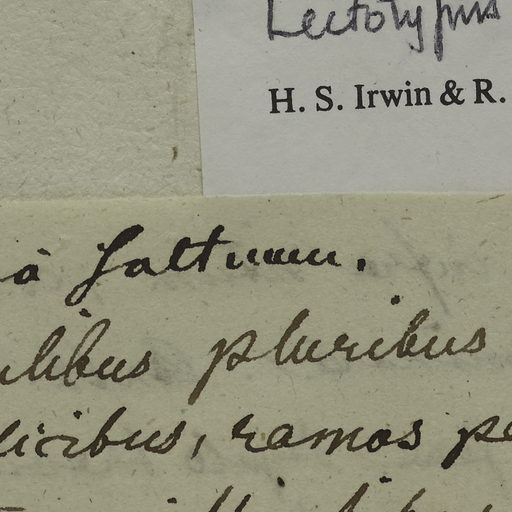 Lectotypus
H. S. Irwin & R.
à Saltuum.
ulibus pluribus
licibus, ramos pe